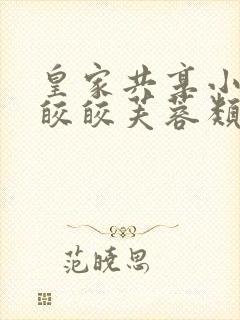 皇家共享小
皎皎芙蓉类
范晓思